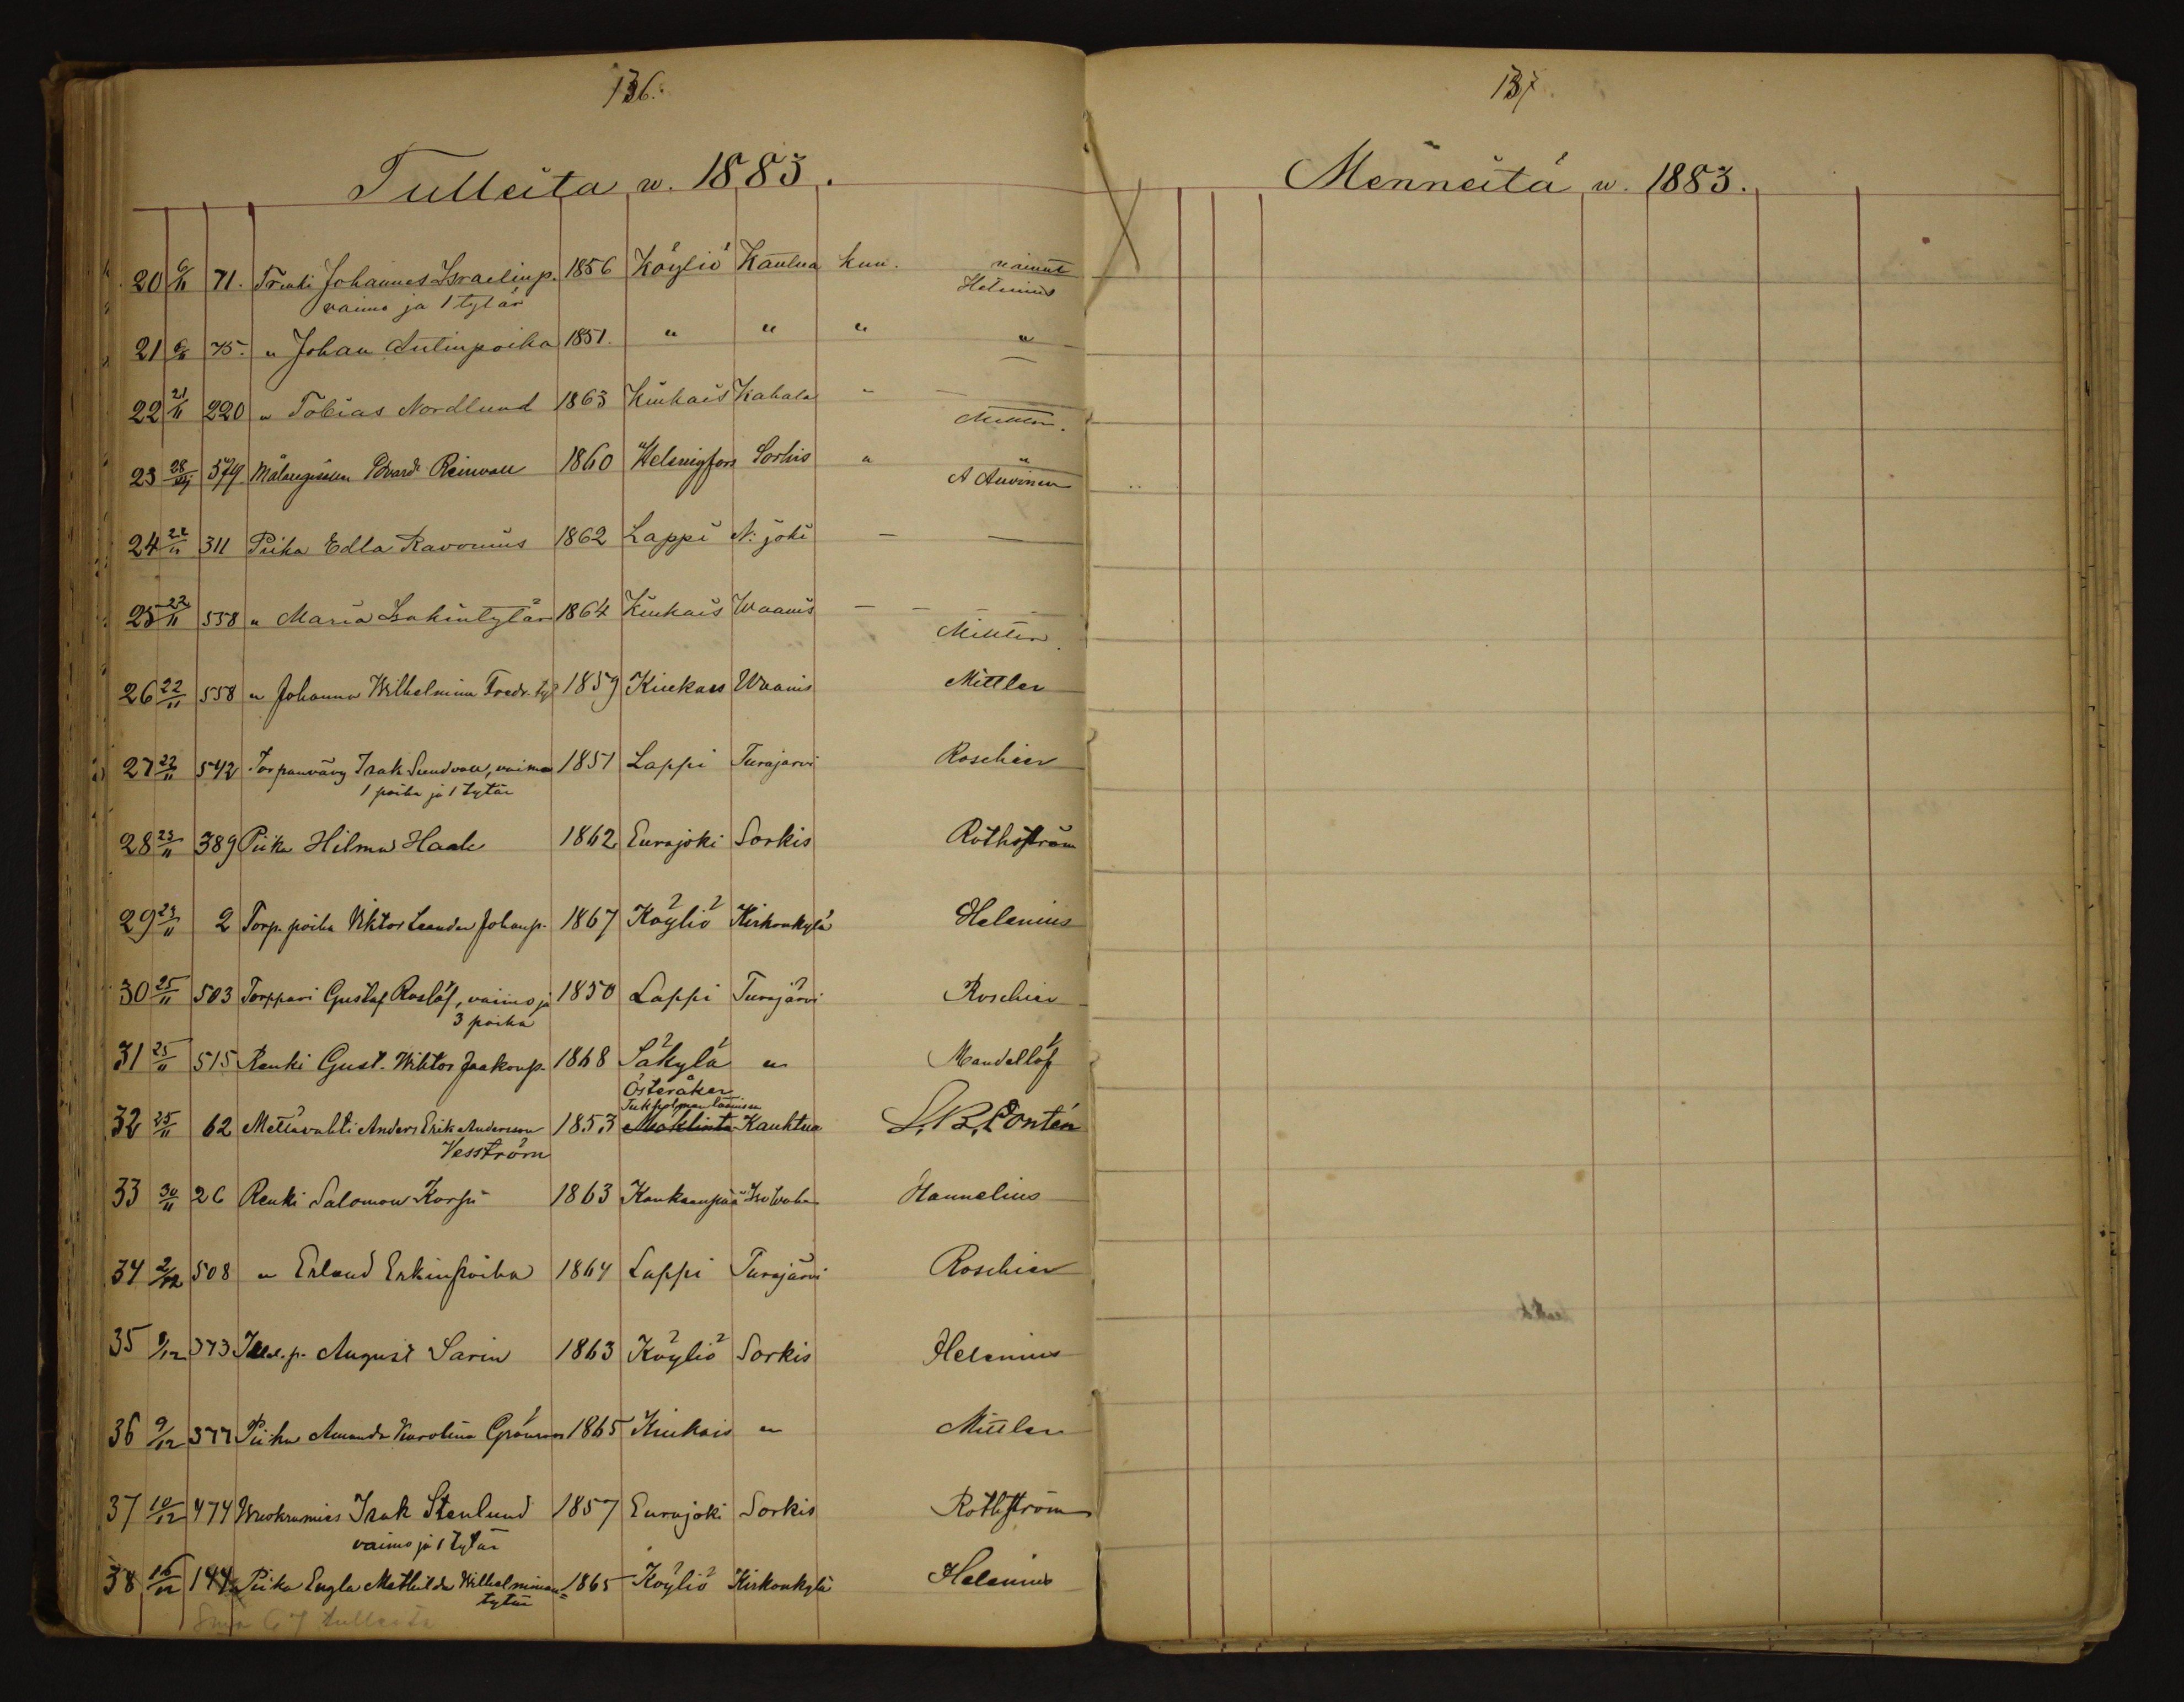 136.
Tulleita w. 1883.
20 6/11 71. Trenki Johannes Israelinp. 1856 Köyliö Kautua kun. nainut
vaimo ja 1 tytär Helenius
21 6/11 75. " Johan Antinpoika 1851. " " " "
22 21/11 220 " Tobias Nordlund 1863 Kiukais Kahala - -
Mittler.
23 579 Målarigisälen Edvard Reinvall 1860 Helsingfors Sorkis " "
A Auvinen
24 22/11 311 Piika Edla Ravonius 1862 Lappi N:joki - -
25 22/11 558 " Maria Isakintytär 1864 Kiukais Waanis - -
Mittler.
26 22/11 558 " Johanna Wilhelmina Fredr. tyt 1859 Kiukais Waanis Mittler
27 22/11 542 Torpanvävy Isak Sundvall, vaimo 1851 Lappi Turajärvi Roschier
1 poika ja 1 tytär
28 23/11 389 Piika Hilma Haak 1862 Eurajoki Sorkis Rothström
29 24/11 2 Torp. poika Viktor Leander Johanp. 1867 Köyliö Kirkonkylä Helenius
30 25/11 503 Torppari Gustaf Roslöf, vaimo ja 1850 Lappi Turajärvi Roschier
3 poika
31 25/11 515 Renki Gust. Wiktor Jaakonp. 1868 Säkylä " Mandellöf
Österåker
Tukholman läänissä
32 25/11 62 Metsävahti Anders Erik Andersson 1853 Kauktua L. B. Pontén
Vesström
33 30/11 26 Renki Salomon Korpi 1863 Kankaanpää Hannelius
34 2/12 508 " Erland Erkinpoika 1864 Lappi Turajärvi Roschier
35 9/12 373 August Sarin 1863 Köyliö Sorkis Helenius
36 9/12 377 Piika Amanda Karolina 1865 Kiukais " Mittler
37 10/12 474 Wuokramies Isak Stenlund 1857 Eurajoki Sorkis Rothström
vaimo ja 1 tytär
38 16/12 144 Piika Engla Mathilda Wilhelminan= 1865 Köyliö Kirkonkylä Helenius
tytär
Sma 67 tulleita
137.
Menneitä w. 1883.